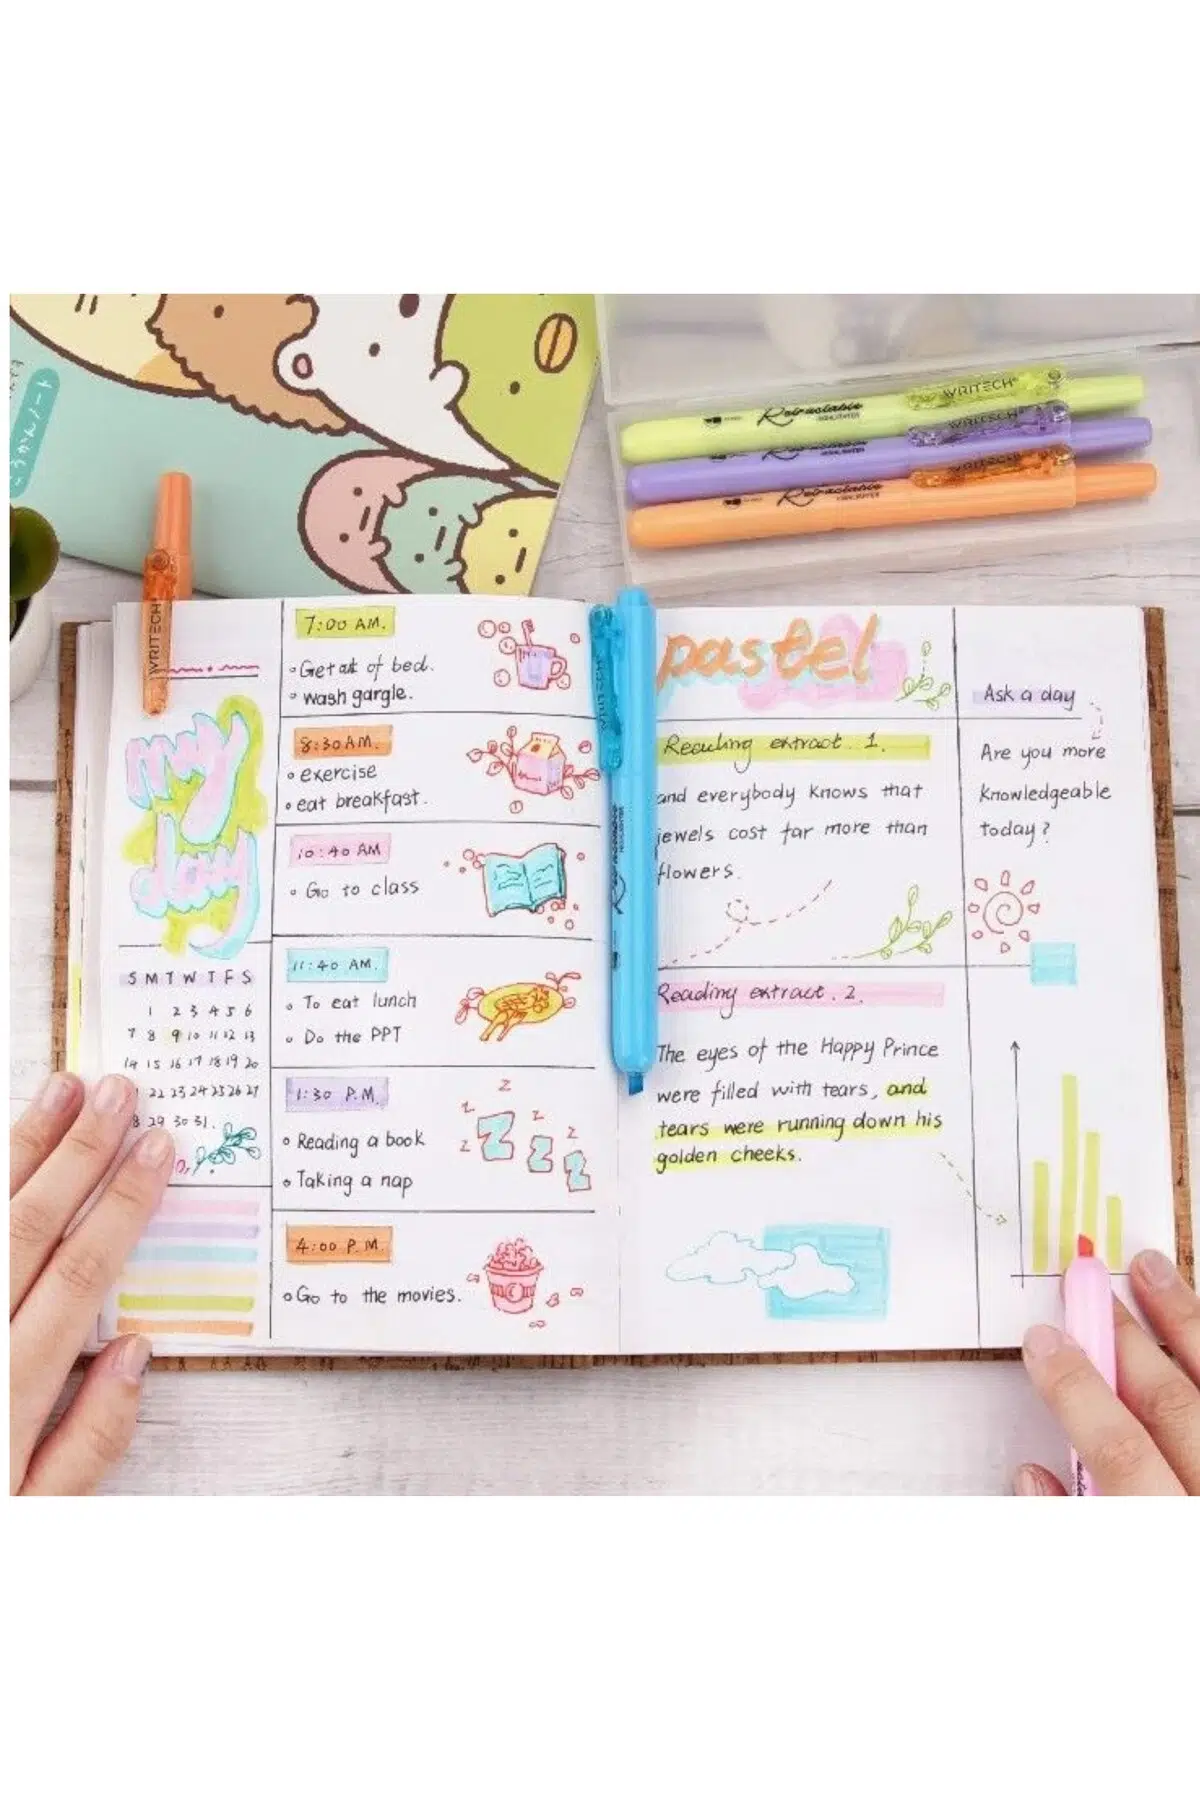 WRITECH
Retractable
HIGHLIGHTER
WRITECH
HIGHLIGHTER
WRITECH
Retractable
HIGHLIGHTER
WRITECH
may
day
S M T W T F S
1 2 3 4 5 6
7 8 9 10 11 12 13
14 15 16 17 18 19 20
22 23 24 25 26 27
8 29 30 31.
7:00 AM.
Get out of bed.
wash gargle.
8:30 AM.
exercise
eat breakfast.
10:40 AM
Go to class
11:40 AM.
To eat lunch
Do the PPT
1:30 P.M.
Reading a book
Taking a nap
Z
Z Z
Z Z Z
Z Z
4:00 P.M.
Go to the movies.
WRITECH
Retractable
HIGHLIGHTER
pastel
Reading extract. 1.
and everybody knows that
jewels cost far more than
flowers.
Reading extract. 2.
The eyes of the Happy Prince
were filled with tears, and
tears were running down his
golden cheeks.
Ask a day
Are you more
knowledgeable
today?